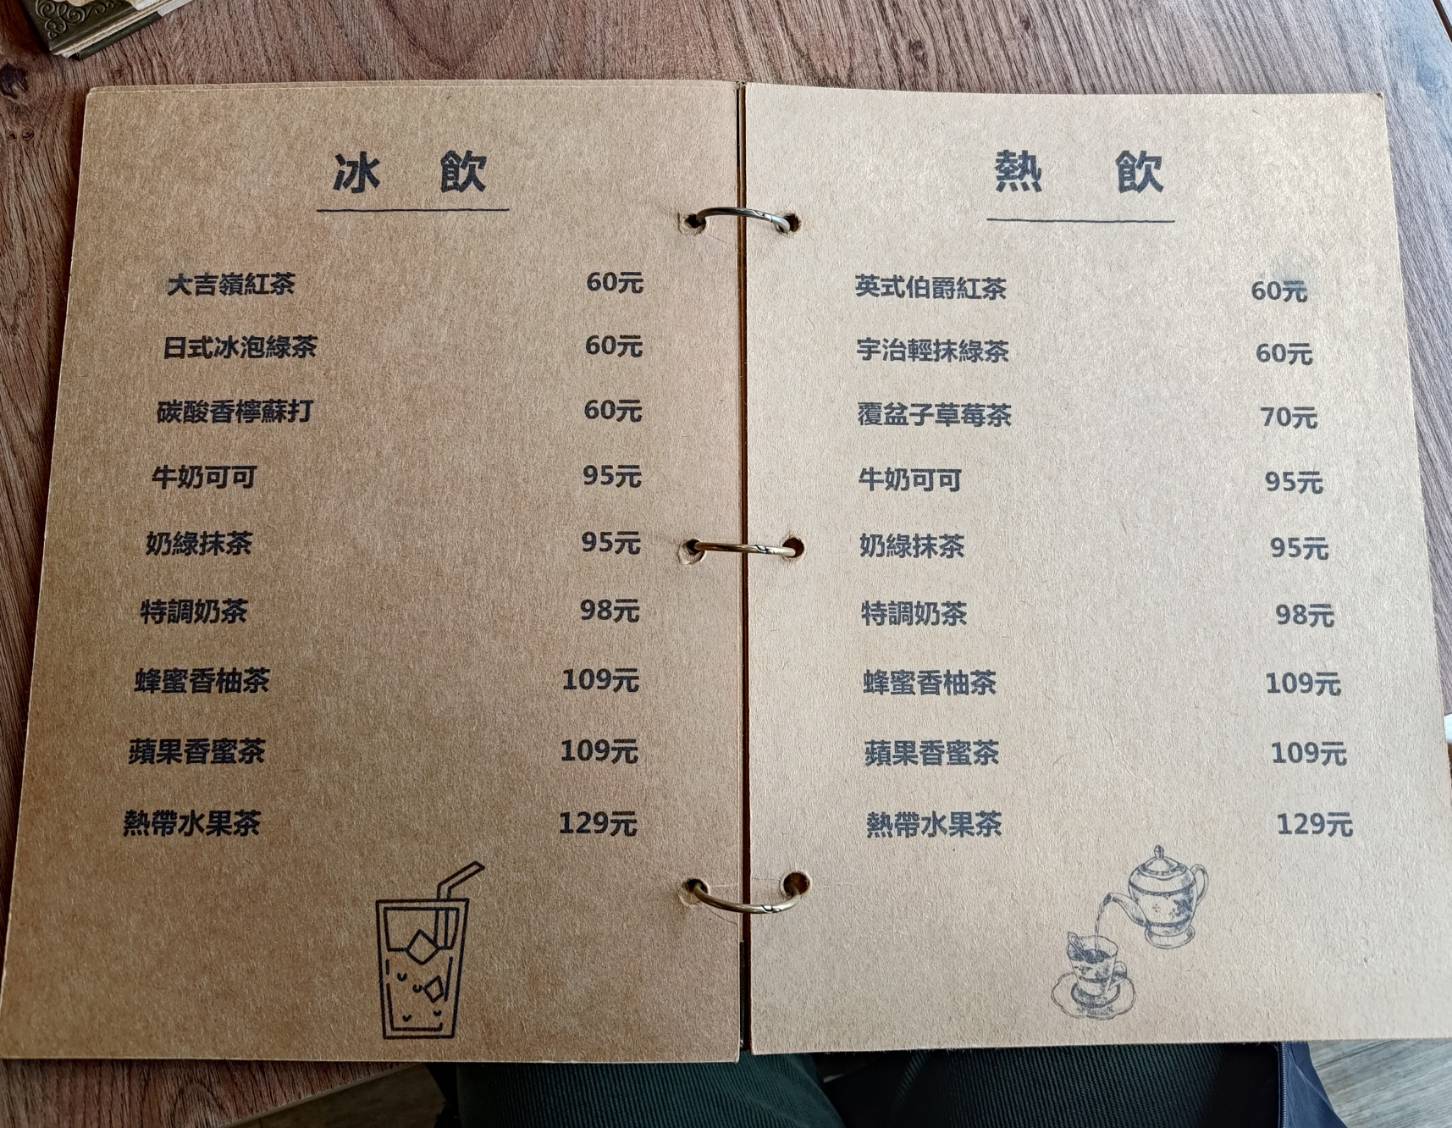 冰 飲
大吉嶺紅茶 60元
日式冰泡綠茶 60元
碳酸香檸蘇打 60元
牛奶可可 95元
奶綠抹茶 95元
特調奶茶 98元
蜂蜜香柚茶 109元
蘋果香蜜茶 109元
熱帶水果茶 129元
熱 飲
英式伯爵紅茶 60元
宇治輕抹綠茶 60元
覆盆子草莓茶 70元
牛奶可可 95元
奶綠抹茶 95元
特調奶茶 98元
蜂蜜香柚茶 109元
蘋果香蜜茶 109元
熱帶水果茶 129元